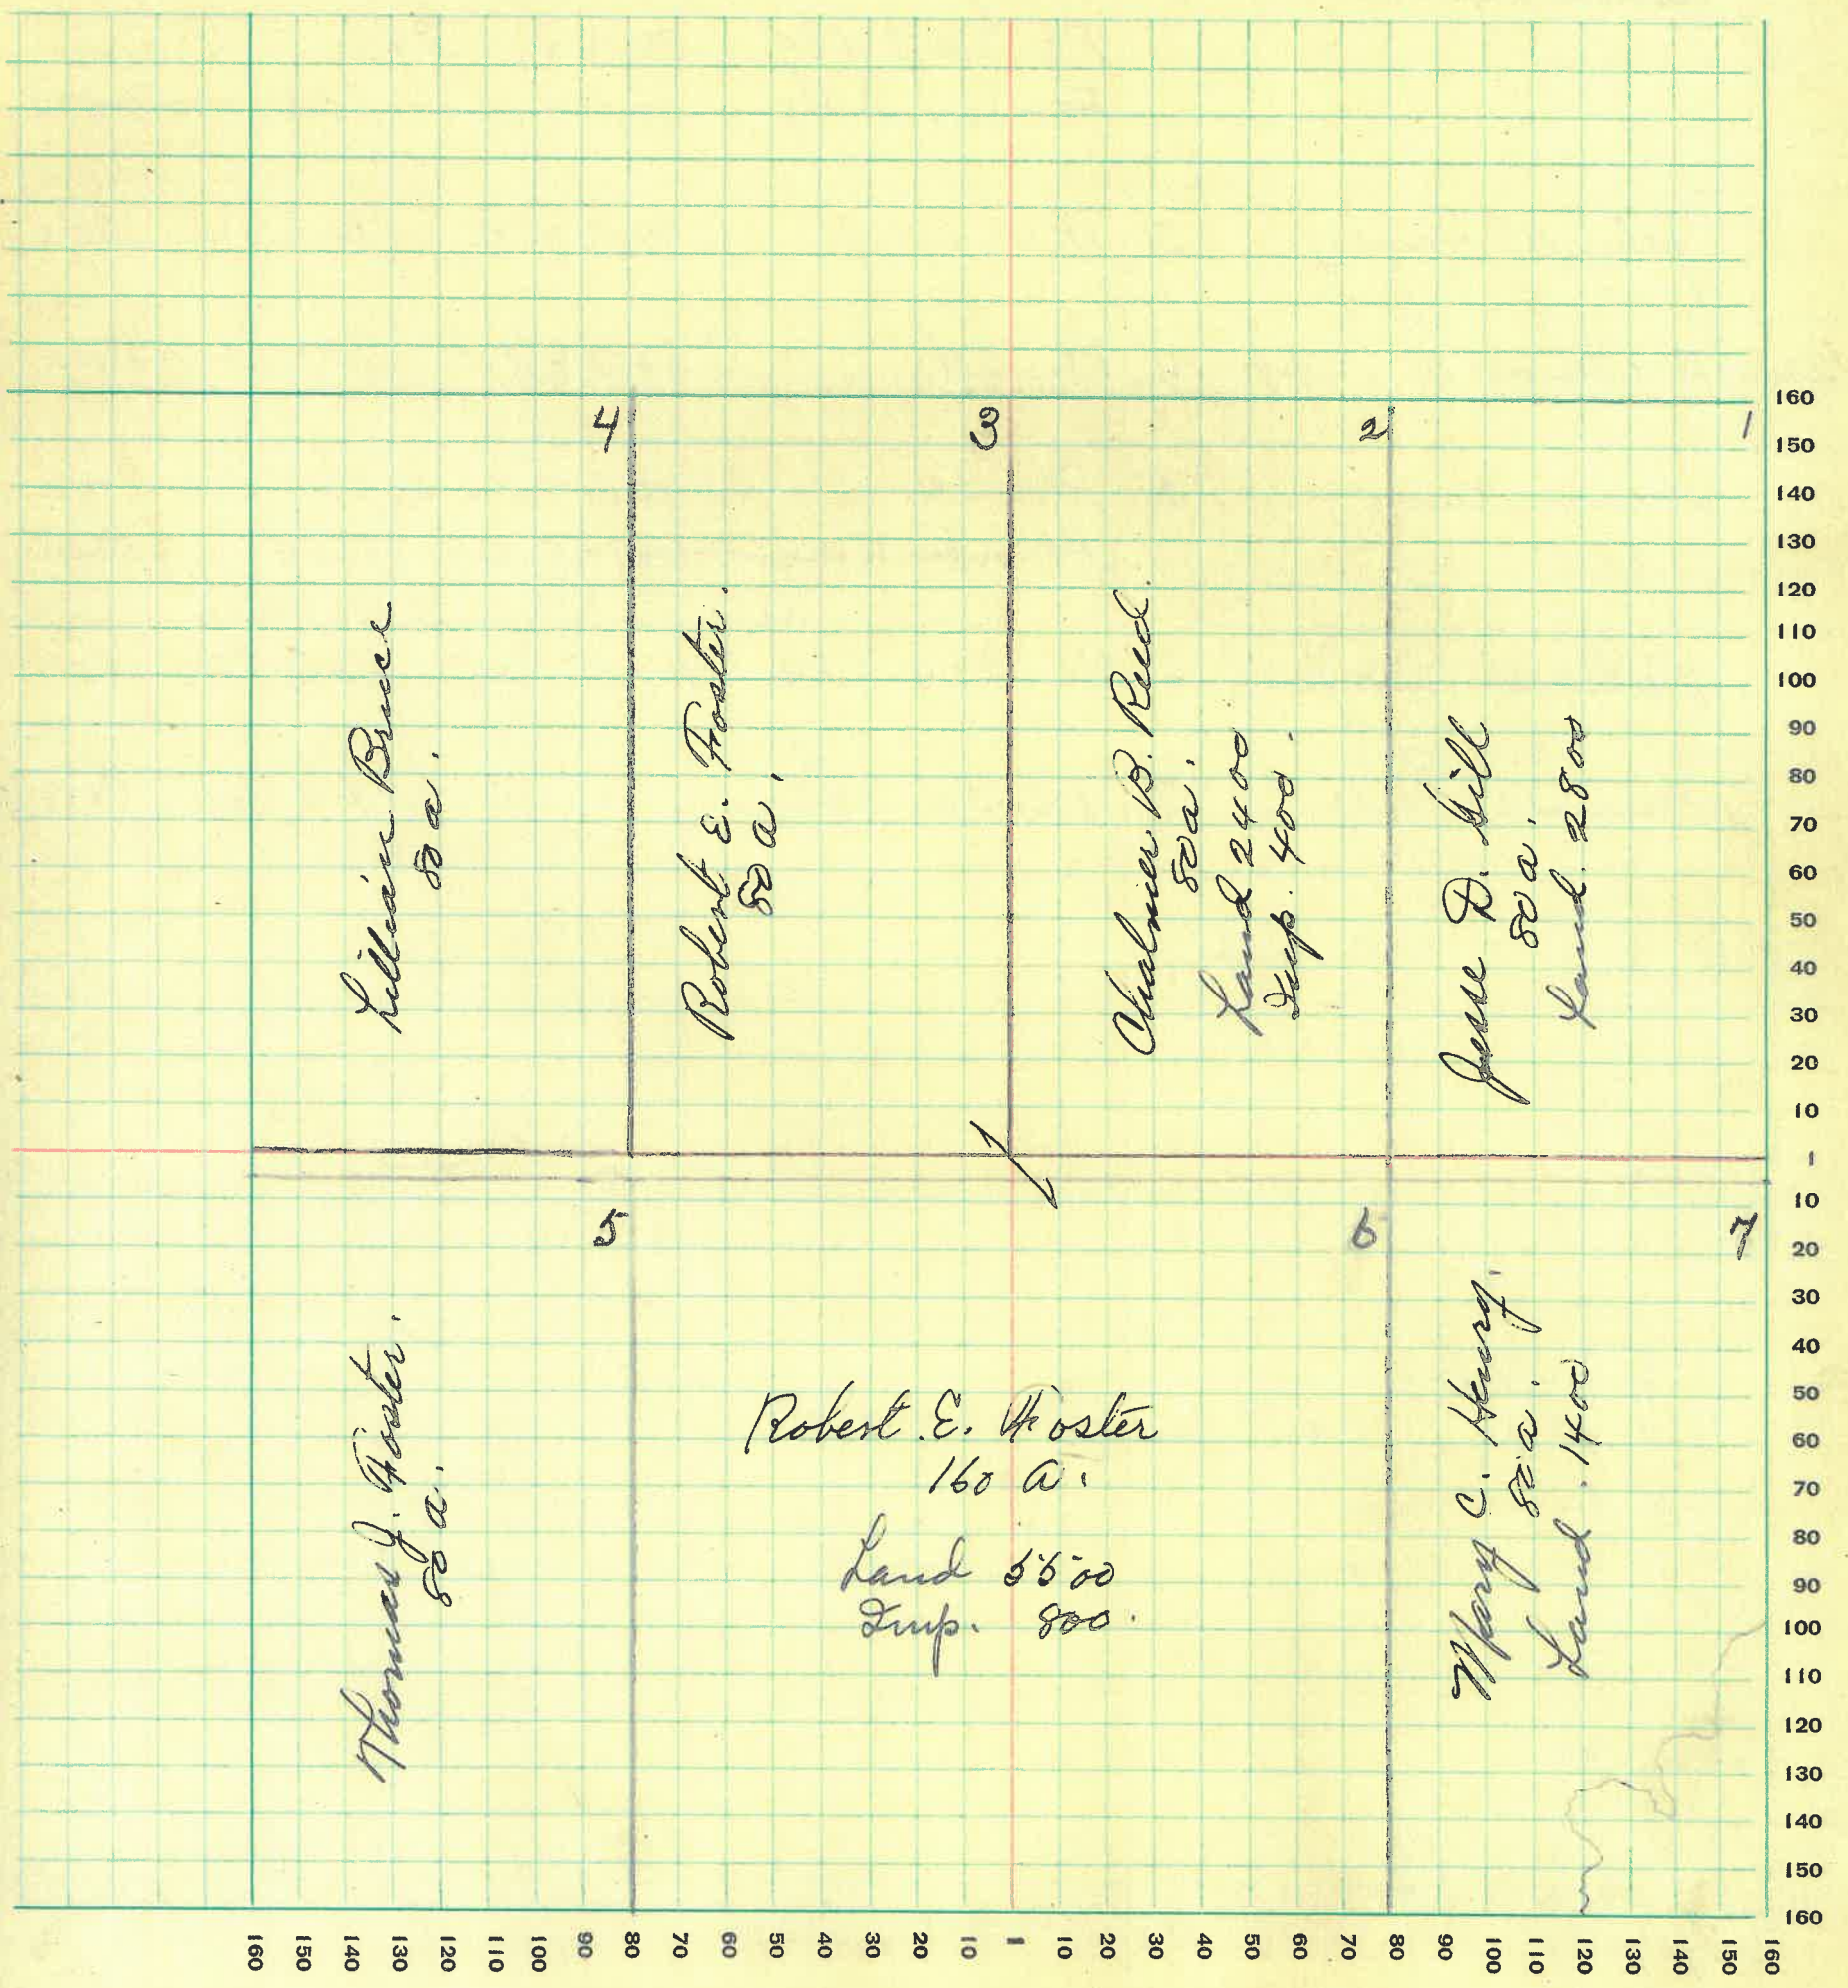 4
Lillian Bruce
80 a.
3
Robert E. Foster.
80 a.
2
Chalmer B. Reed.
80 a.
Land 2400
Imp. 400.
1
Jesse D. Gill
80 a.
Land. 2800
5
Thomas J. Foster.
80 a.
6
Robert E. Foster
160 a.
Land 5500
Imp. 800.
7
Mary C. Henry.
80 a.
Land. 1400
160
150
140
130
120
110
100
90
80
70
60
50
40
30
20
10
1
10
20
30
40
50
60
70
80
90
100
110
120
130
140
150
160
160 150 140 130 120 110 100 90 80 70 60 50 40 30 20 10 1 10 20 30 40 50 60 70 80 90 100 110 120 130 140 150 160